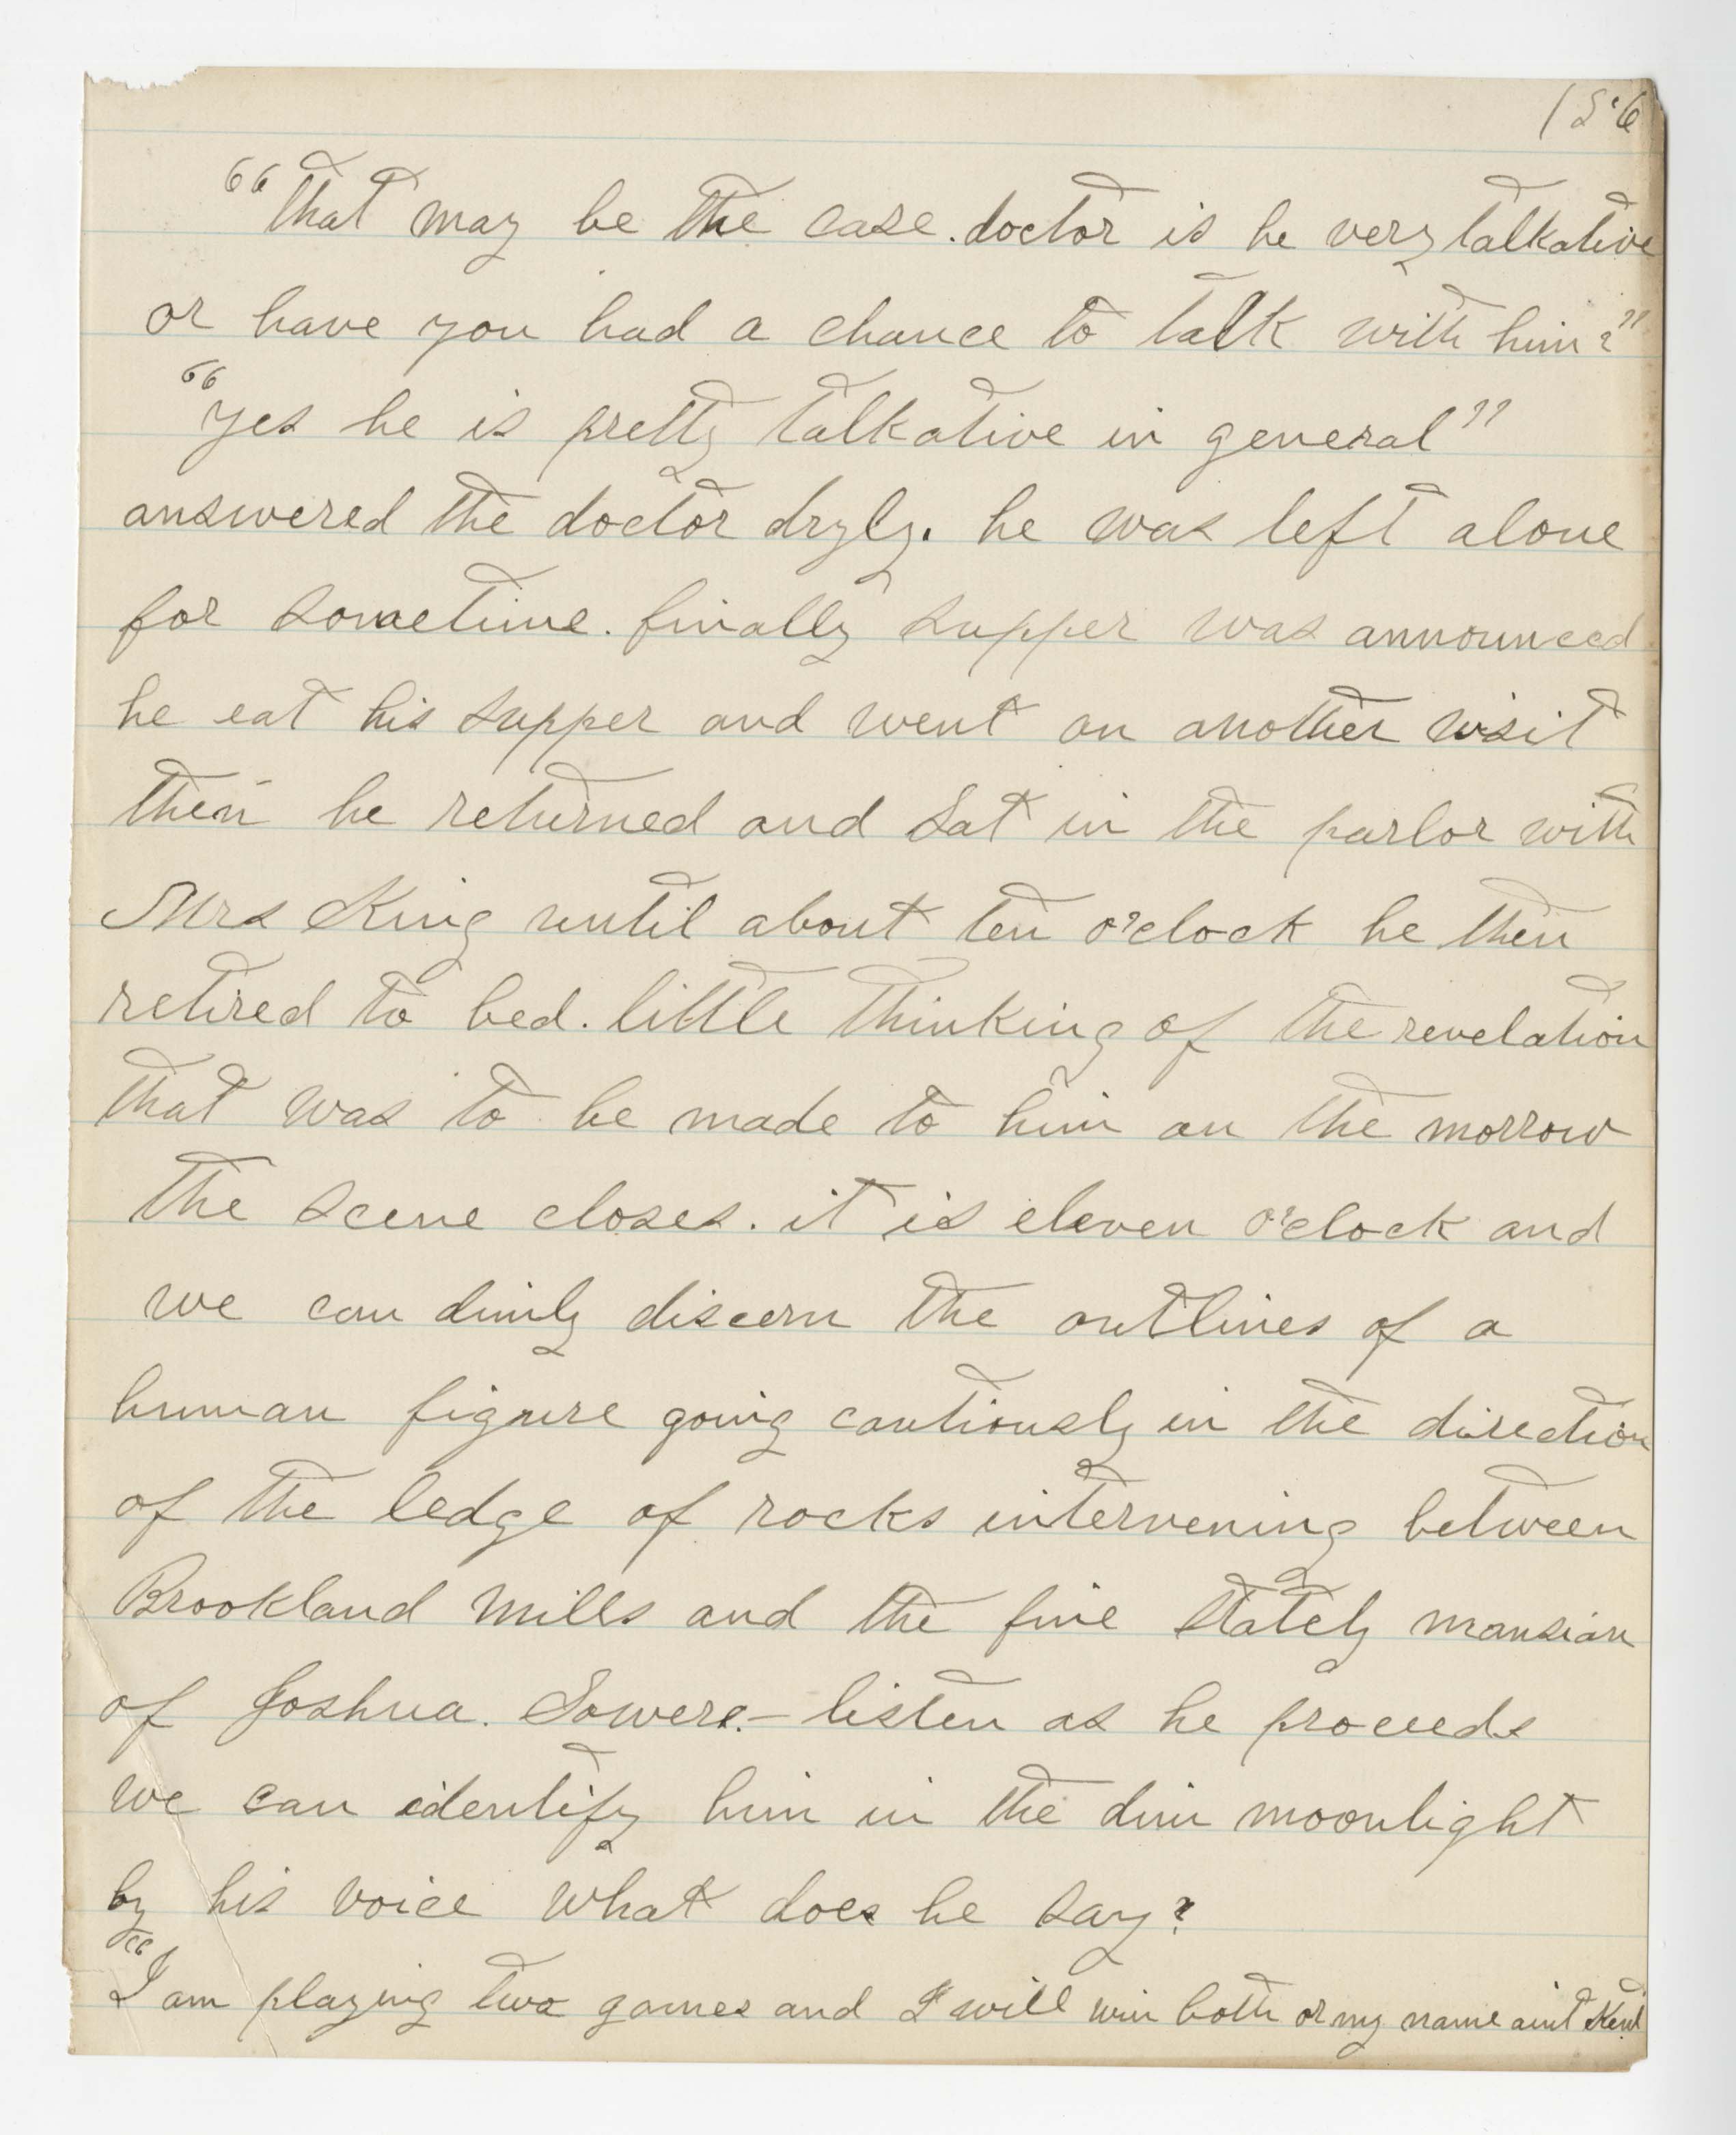 156
"that may be the case. doctor is he very talkative
or have you had a chance to talk with him?"
"yes he is pretty talkative in general"
answered the doctor dryly. he was left alone
for sometime. finally supper was announced
he eat his supper and went on another visit
then he returned and sat in the parlor with
Mrs King until about ten o'clock he then
retired to bed. little thinking of the revelation
that was to be made to him on the morrow
the scene closes. it is eleven o'clock and
we can dimly discern the outlines of a
human figure going cautiously in the direction
of the ledge of rocks intervening between
Brookland Mills and the fine stately mansion
of Joshua. Sowers.- listen as he proceeds
we can identify him in the dim moonlight
by his voice what does he say?
"I am playing two games and I will win both or my name aint Kent